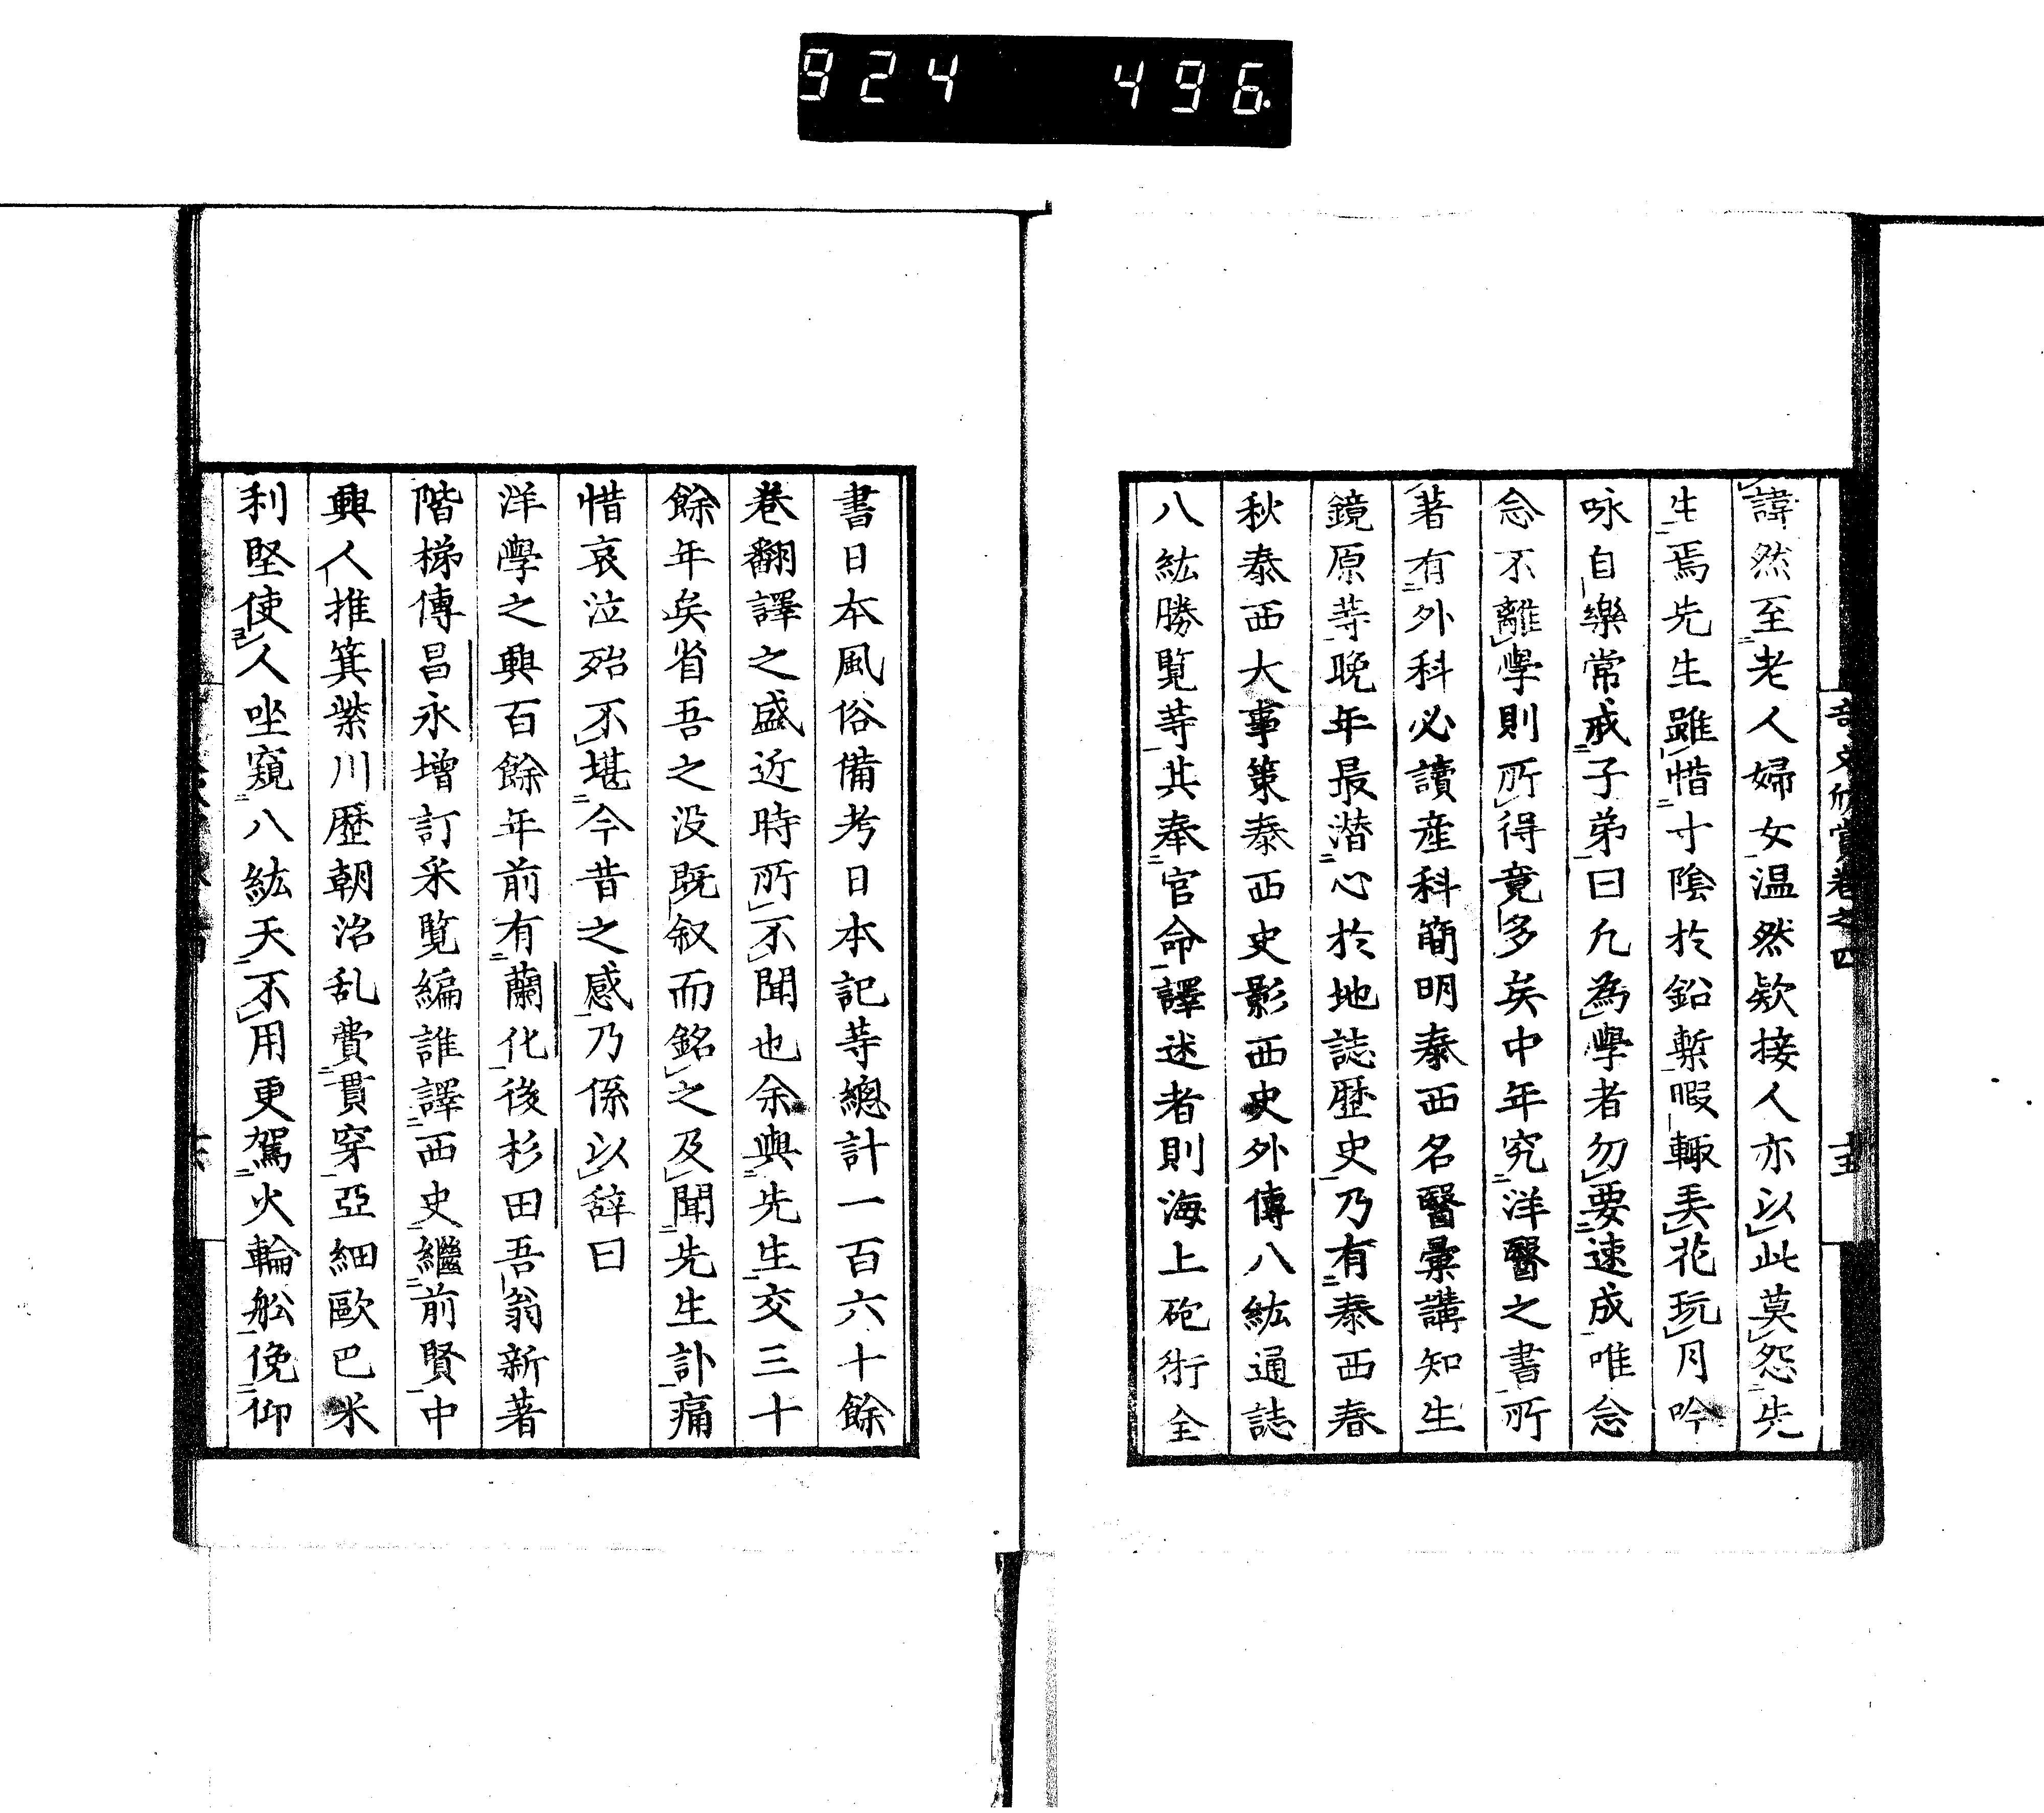 924 496
諱然至老人婦女温然欵接人亦以此莫怨先
生焉先生雖惜寸陰於鉛槧暇輙弄花玩月吟
咏自樂常戒子弟曰凢為學者勿要速成唯念
念不離學則所得竟多矣中年究洋醫之書所
著有外科必讀産科簡明泰西名醫彙講知生
鏡原䓁晩年最潜心於地誌歴史乃有泰西春
秋泰西大事策泰西史影西史外傳八紘通誌
八紘勝覧䓁其奉官命譯述者則海上砲術全
書日本風俗備考日本記䓁總計一百六十餘
巻翻譯之盛近時所不聞也余與先生交三十
餘年矣省吾之没既叙而銘之及聞先生訃痛
惜哀泣殆不堪今昔之感乃係以辞曰
洋學之興百餘年前有蘭化後杉田吾翁新著
階梯傳昌永増訂采覧編誰譯西史繼前賢中
興人推箕紫川歴朝治乱費貫穿亞細歐巴米
利堅使人坐窺八紘天不用更駕火輪舩俛仰